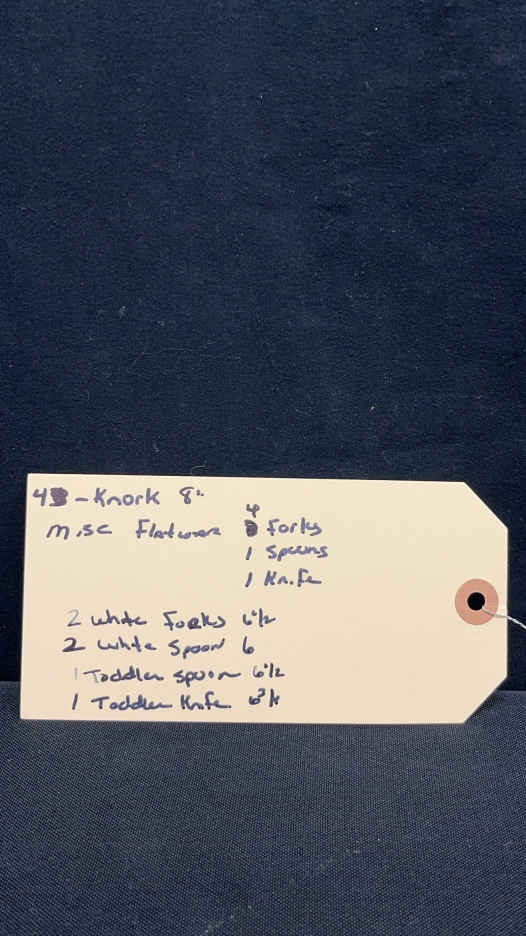 4 - Knork 8"
misc Flatware 4 Forks
1 Spoons
1 Knife
2 White Forks 6 1/2
2 White Spoon 6
1 Toddler spoon 6 1/2
1 Toddler Knife